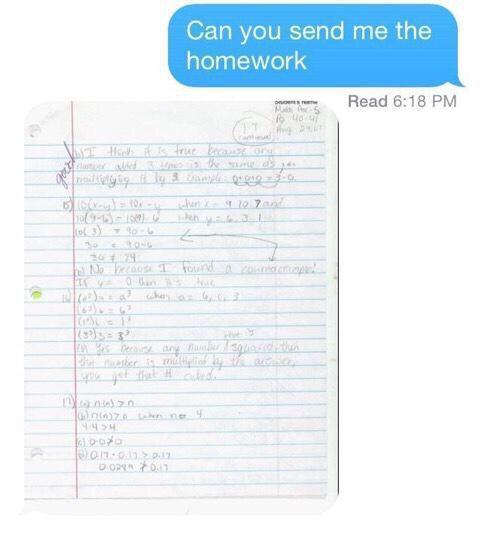 Can you send me the
homework
Read 6:18 PM
Math Per. 5
Pg 40-41
1.7
good
b) I think it is true because any
number added 3 times is the same as
multiplying it by 3 Example: 0+0+0=3·0.
15) 10(x-y) = 10x-y when x= 9, 10, 7 and
10(9-6) = 10(9)-6 when y= 6, 3, 1
10(3) = 90-6
30 = 90-6
30 ≠ 84
b) No because I found a counterexample!
If y= 0 then it's true
16) (a²)a = a³ when a= 6, 1, 3
(6²)6 = 6³
(1²)1 = 1³
(3²)3 = 3³
b) Yes because any number squared, then
that number is multiplied by the answer,
you get that # cubed.
17) (a) n(n) > n
(b) n(n)>n when n= 4
4·4 >4
(c) 0·0≯0
0.17·0.17 > 0.17
0.0289 ≯ 0.17